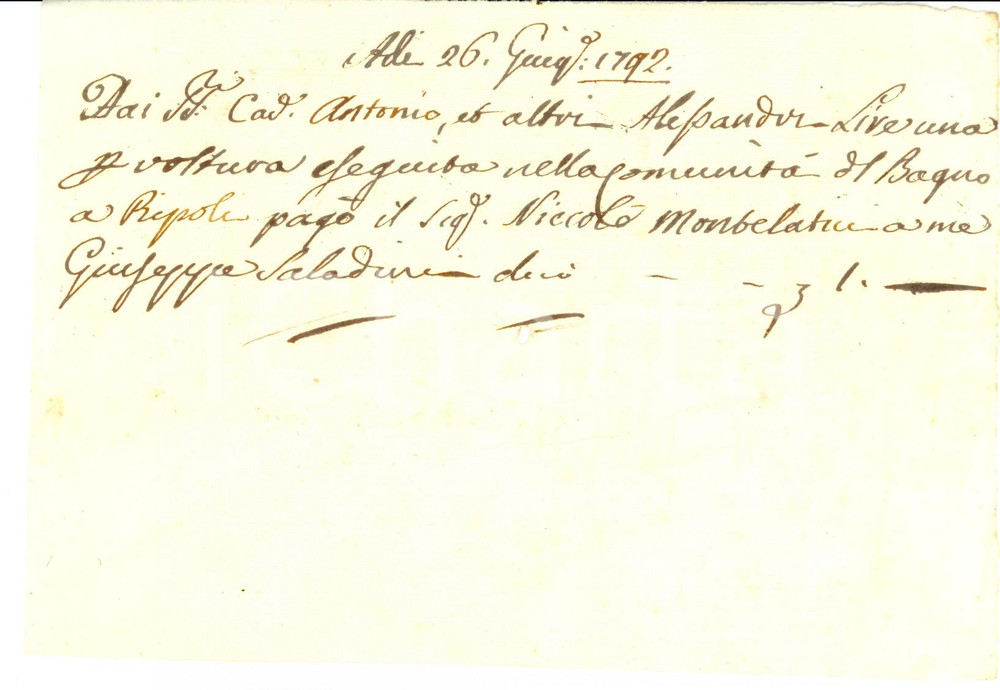 Adi 26. Giug:o 1792.
Dai SS:ri Cav.ri Antonio, et altri Alessandri Lire una
p voltura eseguita nella Comunità del Bagno
a Ripoli pagò il Sig.r Niccolò Montelatici a me
Giuseppe Saladini dico - - £ 1. —